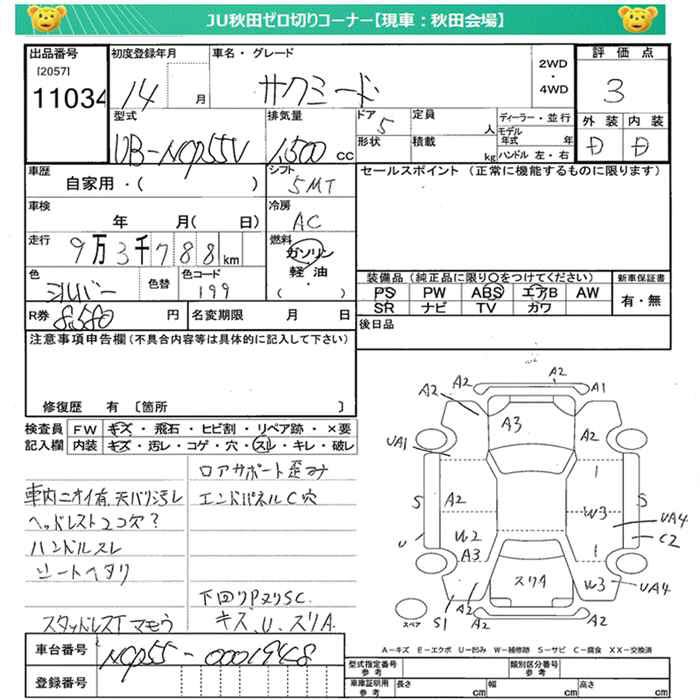 JU秋田ゼロ切りコーナー【現車：秋田会場】
出品番号
[2057]
11034
初度登録年月
14 月
車名・グレード
サクシード
2WD
・
4WD
評価点
3
型式
UB-NCP55V
排気量
1,500 cc
ドア
5
形状
定員
人
積載
kg
ディーラー・並行
モデル年式 年
ハンドル 左・右
外装
D
内装
D
車歴
自家用・( )
シフト
5MT
セールスポイント (正常に機能するものに限ります)
車検
年 月( 日)
冷房
AC
走行
9万3千788km
燃料
ガソリン
軽油
・
( )
色
シルバー
色替
色コード
199
装備品 (純正品に限り○をつけてください)
新車保証書
PS PW ABS エアB AW
SR ナビ TV カワ
有・無
R券
8,580 円
名変期限 月 日
後日品
注意事項申告欄 (不具合内容等は具体的に記入して下さい)
修復歴 有 〔箇所 〕
検査員
記入欄
FW キズ・飛石・ヒビ割・リペア跡・×要
内装 キズ・汚レ・コゲ・穴・スレ・キレ・破レ
ロアサポート歪み
車内ニオイ有 天バリ汚レ
エンドパネルC穴
ヘッドレスト2コ欠?
ハンドルスレ
シートヘタリ
下回りPヌリSC.
スタッドレスT マモウ
キズ、U、スリA.
A2 A2 A2 A1
A3 A2
UA1
S A2 W3 S UA4
U W2 C2
A3
スリA W3 UA4
S1 A2 A2 A2
スペア
A－キズ E－エクボ U－凹み W－補修跡 S－サビ C－腐食 XX－交換済
車台番号
NCP55-0001948
登録番号
型式指定番号
参考
類別区分番号
参考
車庫証明用
参考
長さ cm
幅 cm
高さ cm